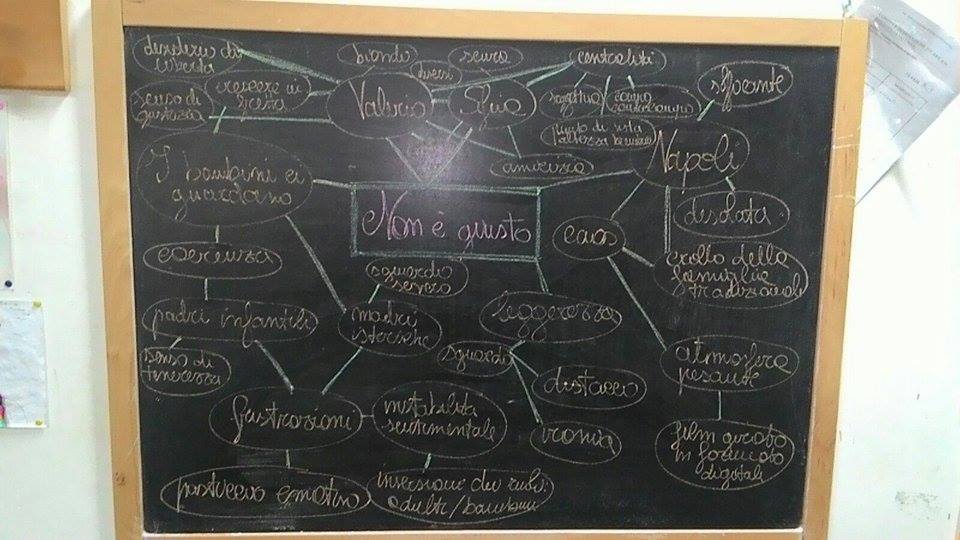 desiderio di
libertà
biondo
scuro
diversi
centralità
senso di
giustizia
crescere in
fretta
Valerio
Sofia
soggettiva
campo
controcampo
soffocante
punto di vista
altezza bambino
amicizia
Napoli
I bambini ci
guardano
Non è giusto
desolata
caos
crollo della
famiglia
tradizionale
coerenza
sguardo
severo
leggerezza
padri infantili
madri
isteriche
sguardo
atmosfera
pesante
senso di
tenerezza
distacco
frustrazioni
instabilità
sentimentale
ironia
film girato
in formato
digitale
pasticcio emotivo
inversione dei ruoli
adulti/bambini